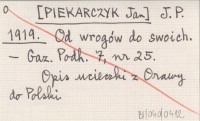 [PIEKARCZYK Jan] J.P.
1919. Od wrogów do swoich.
– Gaz. Podh. 7, nr 25.
Opis ucieczki z Orawy
do Polski
B/04d/0412